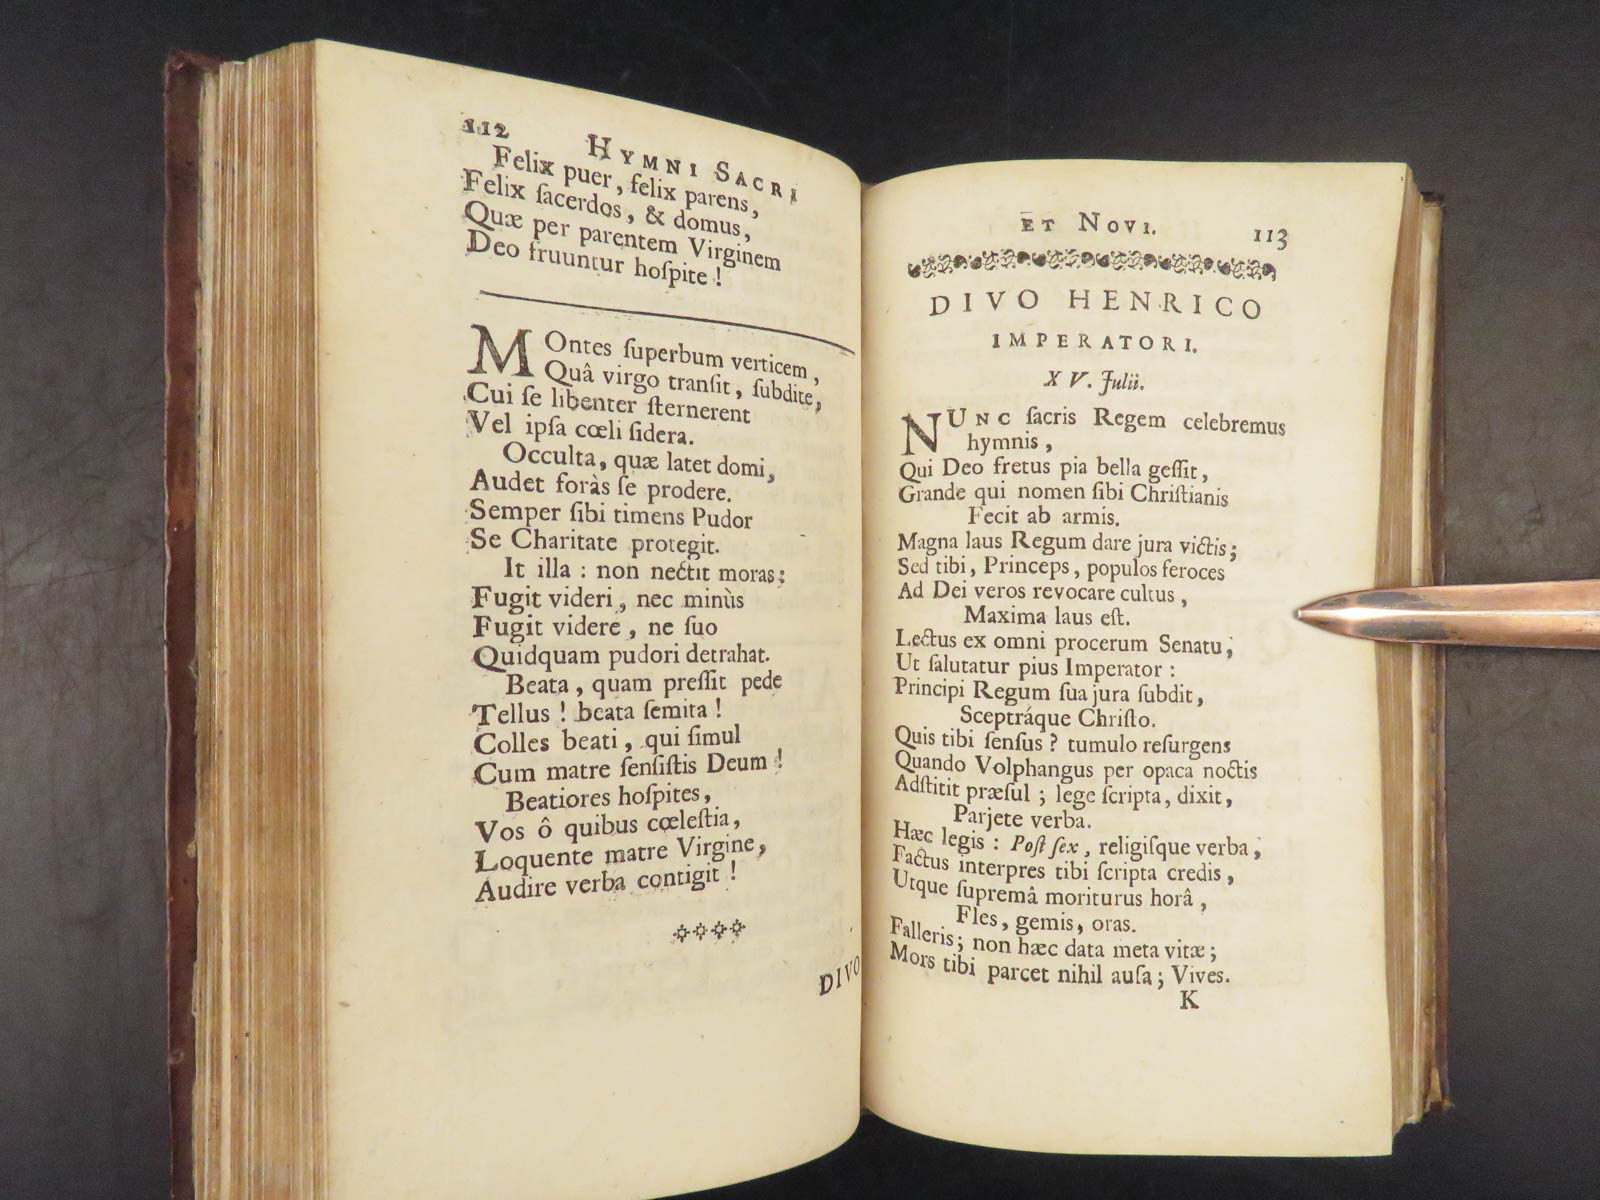 112 HYMNI SACRI
Felix puer, felix parens,
Felix ſacerdos, & domus,
Quæ per parentem Virginem
Deo fruuntur hoſpite !
MOntes ſuperbum verticem,
Quâ virgo tranſit, ſubdite,
Cui ſe libenter ſternerent
Vel ipſa cœli ſidera.
Occulta, quæ latet domi,
Audet foràs ſe prodere.
Semper ſibi timens Pudor
Se Charitate protegit.
It illa : non nectit moras ;
Fugit videri, nec minùs
Fugit videre, ne ſuo
Quidquam pudori detrahat.
Beata, quam preſſit pede
Tellus ! beata ſemita !
Colles beati, qui ſimul
Cum matre ſenſiſtis Deum !
Beatiores hoſpites,
Vos ô quibus cœleſtia,
Loquente matre Virgine,
Audire verba contigit !
DIVO
ET NOVI. 113
DIVO HENRICO
IMPERATORI.
XV. Julii.
NUNC ſacris Regem celebremus
hymnis,
Qui Deo fretus pia bella geſſit,
Grande qui nomen ſibi Chriſtianis
Fecit ab armis.
Magna laus Regum dare jura victis ;
Sed tibi, Princeps, populos feroces
Ad Dei veros revocare cultus,
Maxima laus eſt.
Lectus ex omni procerum Senatu,
Ut ſalutatur pius Imperator :
Principi Regum ſua jura ſubdit,
Sceptráque Chriſto.
Quis tibi ſenſus ? tumulo reſurgens
Quando Volphangus per opaca noctis
Adſtitit præſul ; lege ſcripta, dixit,
Parjete verba.
Hæc legis : Poſt ſex, religiſque verba ;
Factus interpres tibi ſcripta credis,
Utque ſupremâ moriturus horâ,
Fles, gemis, oras.
Falleris ; non hæc data meta vitæ ;
Mors tibi parcet nihil auſa ; Vives.
K